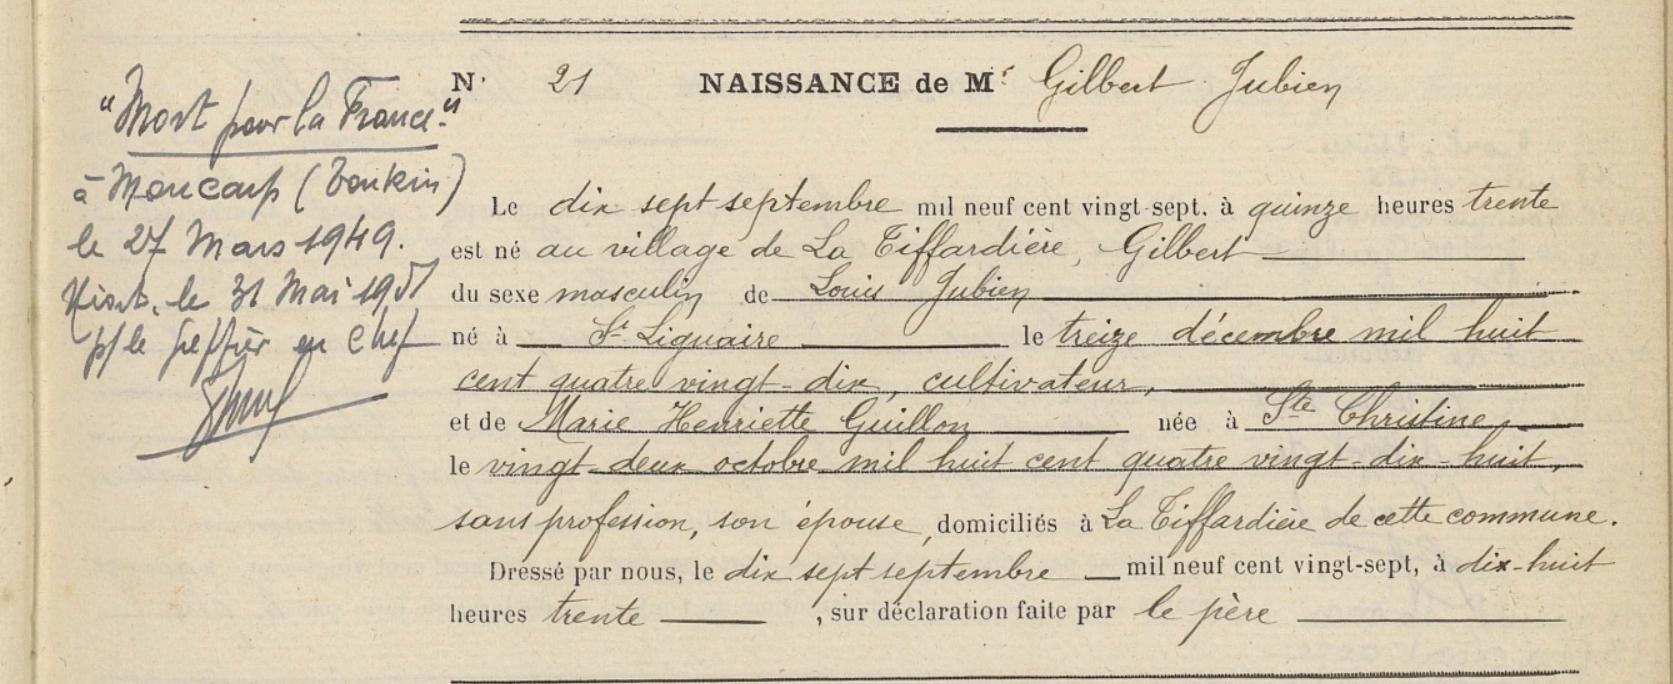 "Mort pour la France."
à Moncap (Tonkin)
le 27 Mars 1949.
Niort, le 31 Mai 1951
p/ le greffier en Chef
N° 21 NAISSANCE de Mr Gilbert Jubien
Le dix sept septembre mil neuf cent vingt-sept. à quinze heures trente
est né au village de La Tiffardière, Gilbert
du sexe masculin de Louis Jubien
né à St Liguaire le treize décembre mil huit
cent quatre vingt-dix, cultivateur,
et de Marie Henriette Guillon née à Ste Christine,
le vingt-deux octobre mil huit cent quatre vingt-dix-huit,
sans profession, son épouse, domiciliés à La Tiffardière de cette commune.
Dressé par nous, le dix sept septembre mil neuf cent vingt-sept, à dix-huit
heures trente , sur déclaration faite par le père